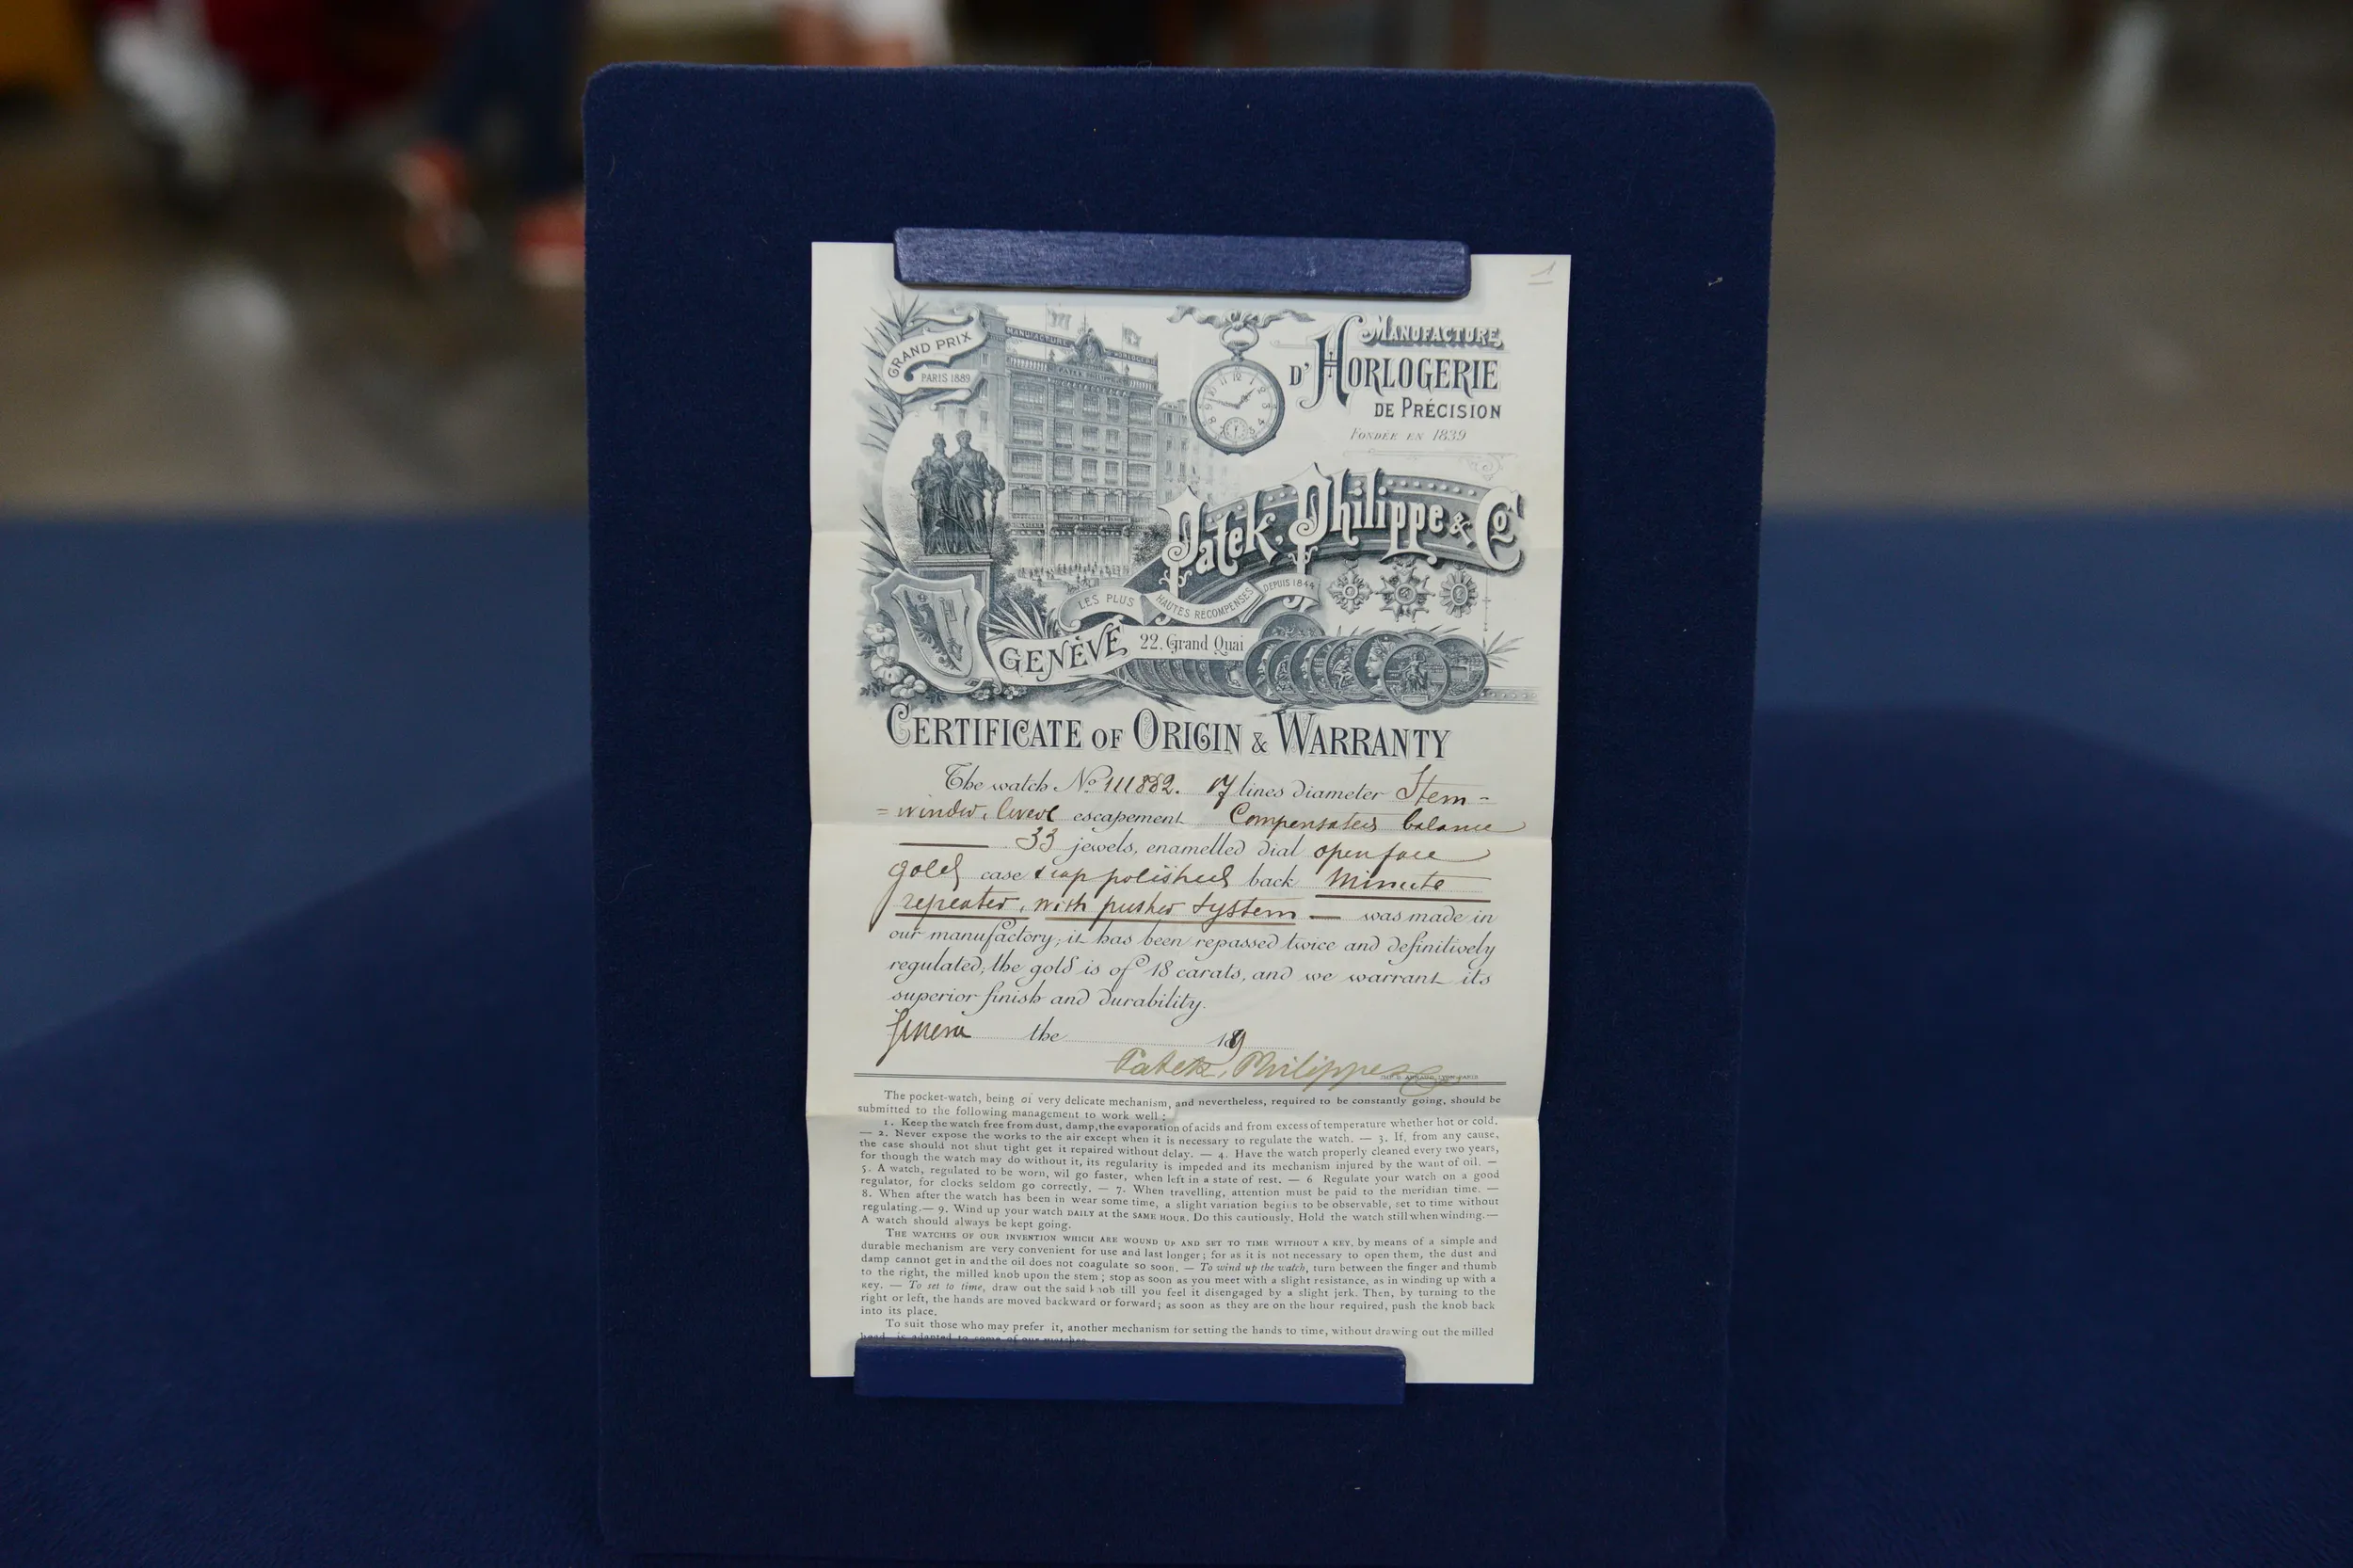 1
GRAND PRIX
PARIS 1889
MANUFACTURE HORLOGERIE
MANUFACTURE
D'HORLOGERIE
DE PRÉCISION
FONDÉE EN 1839
Patek, Philippe & Co
LES PLUS HAUTES RÉCOMPENSES DEPUIS 1844
GENÈVE 22, Grand Quai
CERTIFICATE OF ORIGIN & WARRANTY
The watch No 111882. 17 lines diameter Stem-
=winder, lever escapement Compensated balance
33 jewels, enamelled dial open face
gold case & cap polished back Minute
repeater, with pusher system — was made in
our manufactory; it has been repassed twice and definitively
regulated; the gold is of 18 carats, and we warrant its
superior finish and durability.
Geneva the 189
Patek, Philippe & Co
The pocket-watch, being of very delicate mechanism, and nevertheless, required to be constantly going, should be
submitted to the following management to work well :
1. Keep the watch free from dust, damp, the evaporation of acids and from excess of temperature whether hot or cold.
— 2. Never expose the works to the air except when it is necessary to regulate the watch. — 3. If, from any cause,
the case should not shut tight get it repaired without delay. — 4. Have the watch properly cleaned every two years,
for though the watch may do without it, its regularity is impeded and its mechanism injured by the want of oil. —
5. A watch, regulated to be worn, wil go faster, when left in a state of rest. — 6 Regulate your watch on a good
regulator, for clocks seldom go correctly. — 7. When travelling, attention must be paid to the meridian time. —
8. When after the watch has been in wear some time, a slight variation begins to be observable, set to time without
regulating. — 9. Wind up your watch DAILY at the SAME HOUR. Do this cautiously. Hold the watch still when winding. —
A watch should always be kept going.
THE WATCHES OF OUR INVENTION WHICH ARE WOUND UP AND SET TO TIME WITHOUT A KEY, by means of a simple and
durable mechanism are very convenient for use and last longer ; for as it is not necessary to open them, the dust and
damp cannot get in and the oil does not coagulate so soon. — To wind up the watch, turn between the finger and thumb
to the right, the milled knob upon the stem ; stop as soon as you meet with a slight resistance, as in winding up with a
key. — To set to time, draw out the said knob till you feel it disengaged by a slight jerk. Then, by turning to the
right or left, the hands are moved backward or forward; as soon as they are on the hour required, push the knob back
into its place.
To suit those who may prefer it, another mechanism for setting the hands to time, without drawing out the milled
head, is adapted to some of our watches.